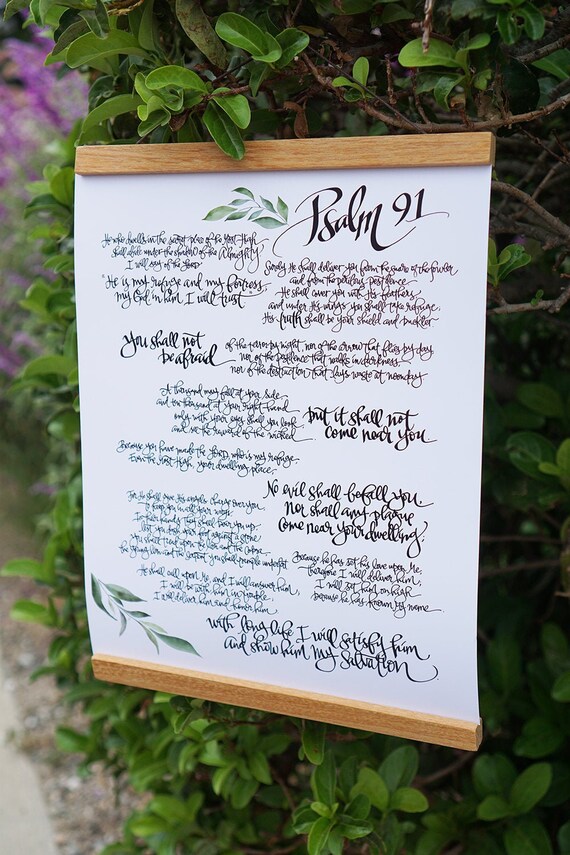 Psalm 91
He who dwells in the secret place of the Most High
shall abide under the shadow of the Almighty
I will say of the LORD
"He is my refuge and my fortress
my God in him I will trust
Surely He shall deliver you from the snare of the fowler
and from the perilous pestilence.
He shall cover you with His feathers,
and under His wings you shall take refuge;
His truth shall be your shield and buckler
you shall not
be afraid
of the terror by night, nor of the arrow that flies by day
nor of the pestilence that walks in darkness,
nor of the destruction that lays waste at noonday
A thousand may fall at your side
and ten thousand at your right hand
but it shall not
come near you.
only with your eyes shall you look
and see the reward of the wicked
Because you have made the LORD, who is my refuge,
Even the Most High, your dwelling place,
No evil shall befall you,
Nor shall any plague
Come near your dwelling;
For He shall give His angels charge over you
to keep you in all your ways
In their hands they shall bear you up,
lest you dash your foot against a stone
You shall tread upon the lion and the cobra
the young lion and the serpent you shall trample underfoot
Because he has set his love upon Me,
therefore I will deliver him;
I will set him on high
because he has known My name
He shall call upon Me, and I will answer him;
I will be with him in trouble.
I will deliver him and honor him
with long life I will satisfy him
and show him My salvation.